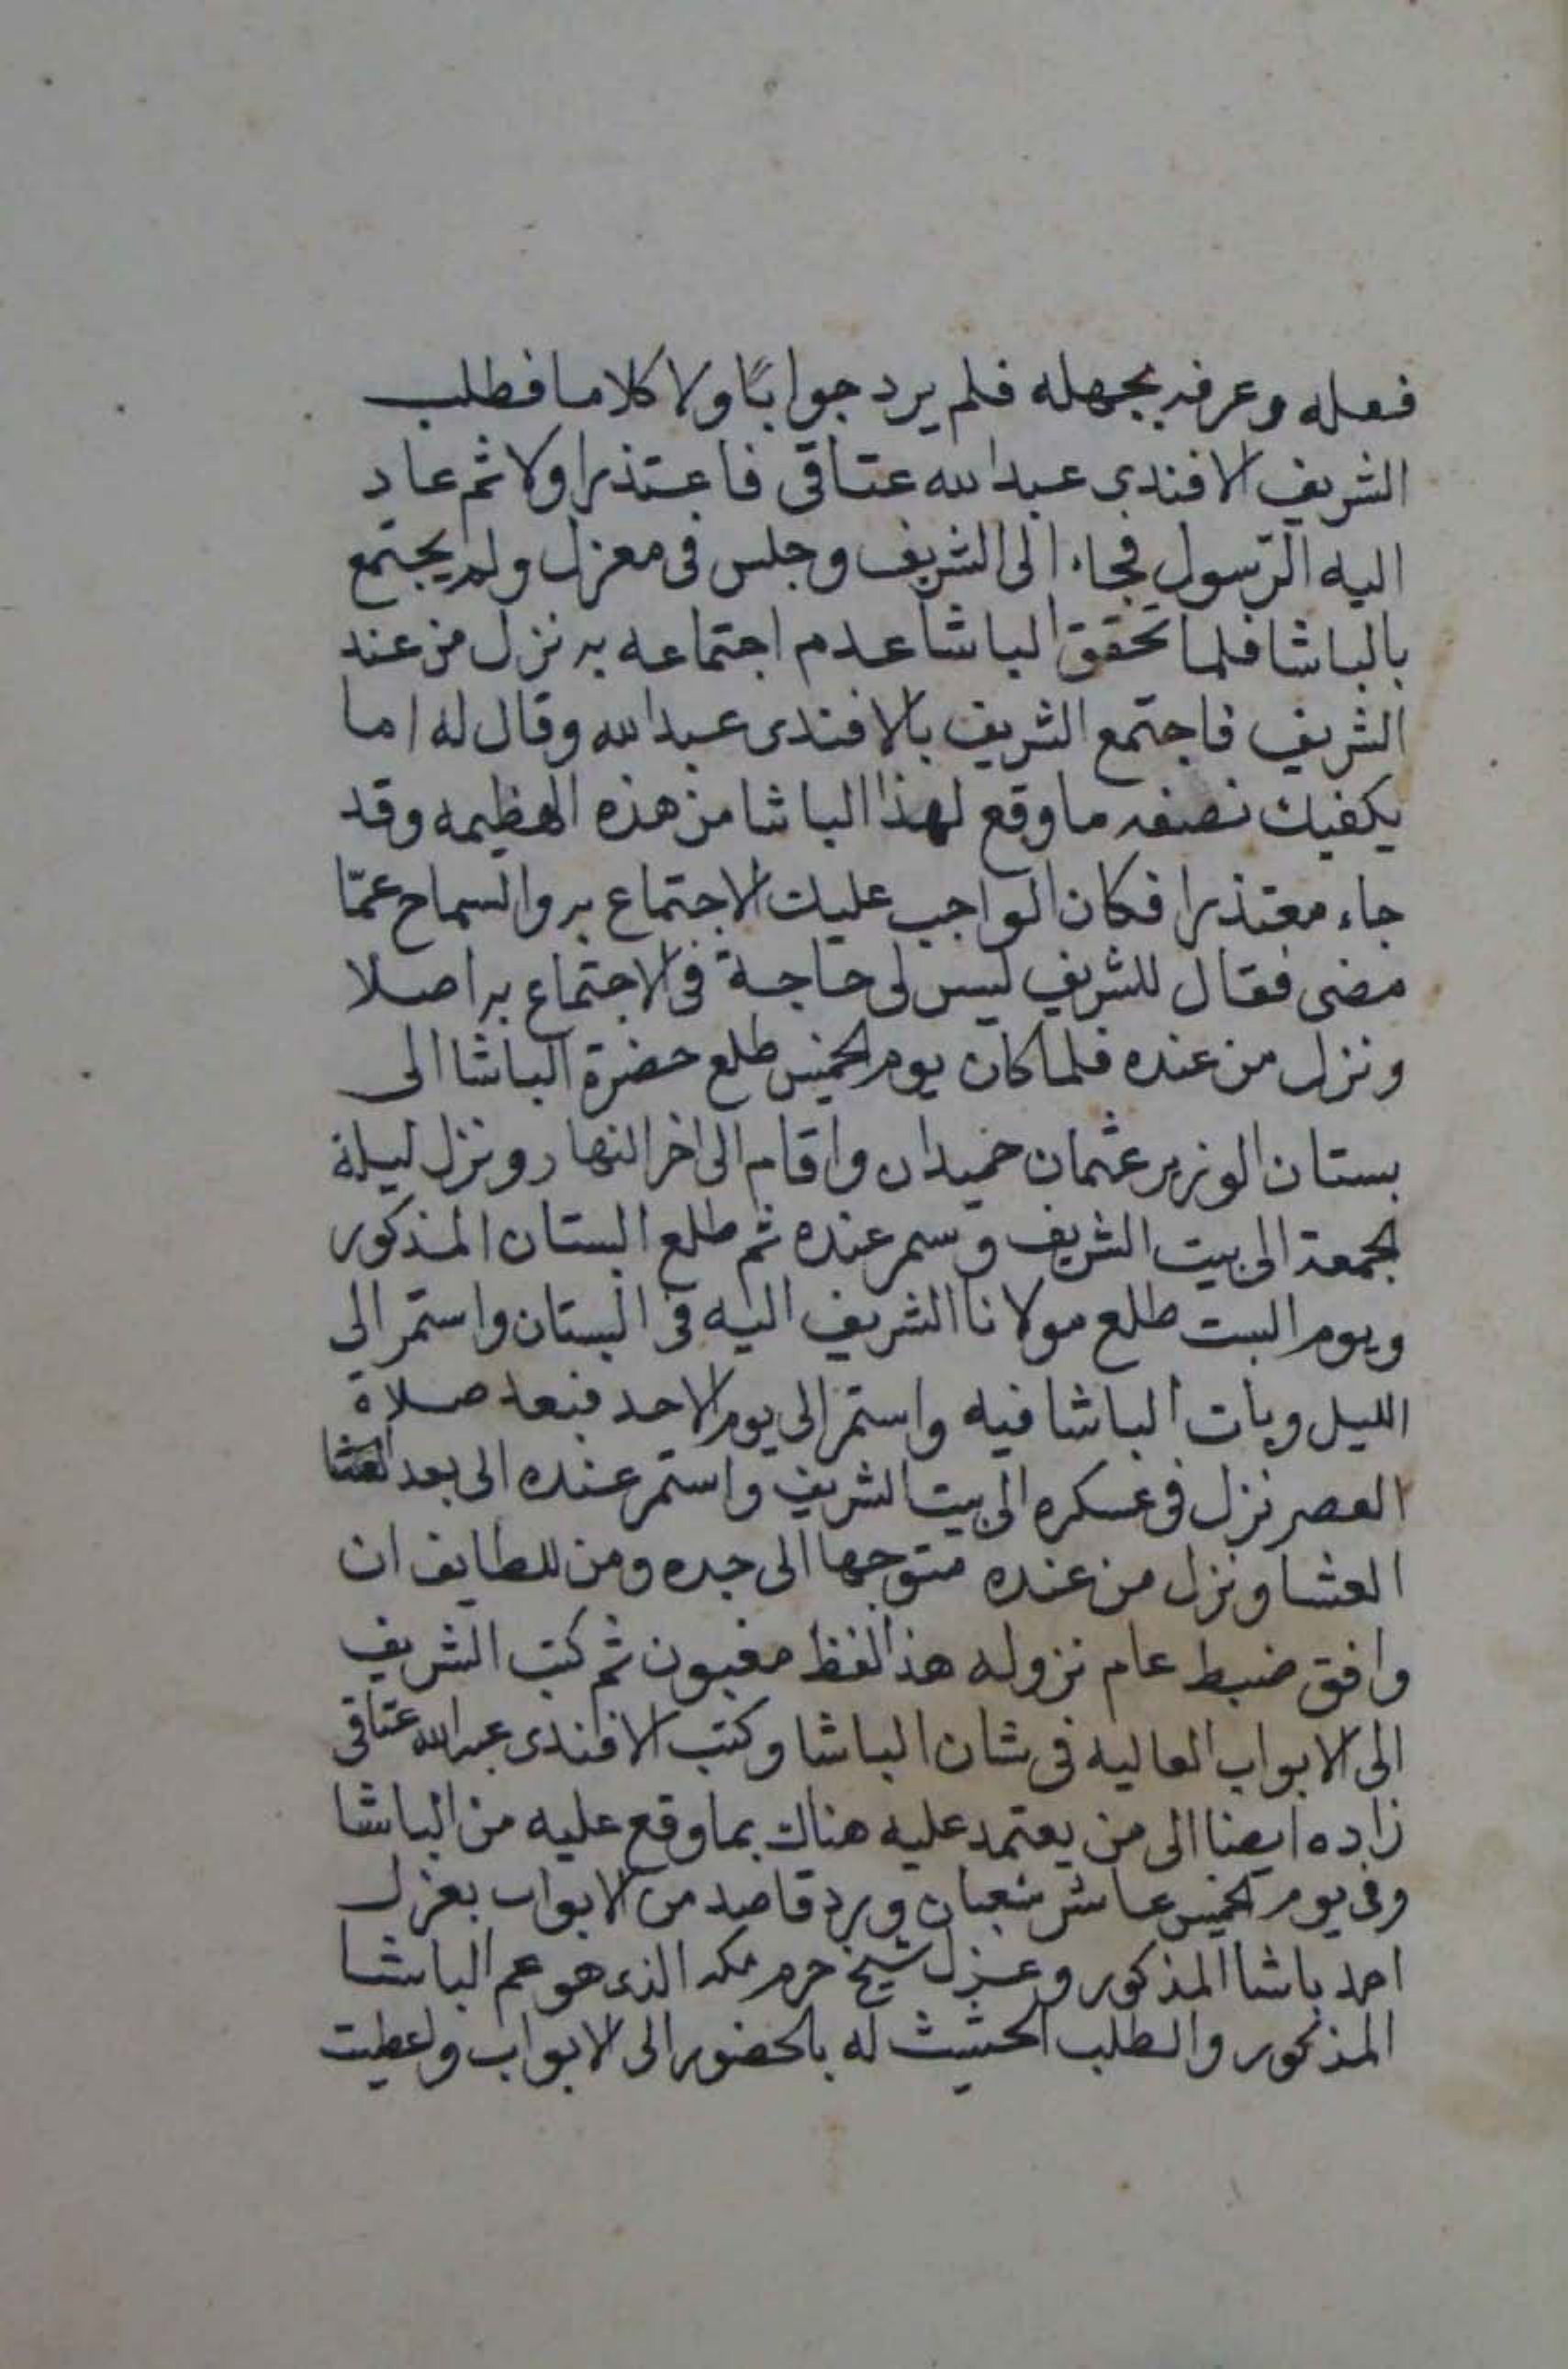 فعله وعرفه بجهله فلم يرد جوابًا ولا كلاما فطلب
الشريف الافندى عبدالله عتاقى فاعتذر اولا ثم عاد
اليه الرّسول فجاء الى الشريف وجلس فى معزل ولم يجتمع
بالباشا فلما تحقق الباشا عدم اجتماعه به نزل من عند
الشريف فاجتمع الشريف بالافندى عبدالله وقال له اما
يكفيك نصفه ما وقع لهذا الباشا من هذه الهظيمه وقد
جاء معتذرا فكان الواجب عليك الاجتماع به والسماح عمّا
مضى فقال للشريف ليس لى حاجة فى الاجتماع به اصلا
ونزل من عنده فلما كان يوم الخميس طلع حضرة الباشا الى
بستان الوزير عثمان حميدان واقام الى اخر النهار ونزل ليلة
الجمعة الى بيت الشريف وسمر عنده ثم طلع البستان المذكور
ويوم السبت طلع مولانا الشريف اليه فى البستان واستمر الى
الليل وبات الباشا فيه واستمر الى يوم الاحد فبعد صلاة
العصر نزل فى عسكره الى بيت الشريف واستمر عنده الى بعد
العشا ونزل من عنده متوجها الى جده ومن للطايف ان
وافق ضبط عام نزوله هذ الفظ مغبون ثم كتب الشريف
الى الابواب العاليه فى شان الباشا وكتب الافندى عبدالله عتاقى
زاده ايضا الى من يعتمد عليه هناك بما وقع عليه من الباشا
وفى يوم الخميس عاشر شعبان ورد قاصد من الابواب بعزل
احمد باشا المذكور وعزل شيخ حرم مكه الذى هو عم الباشا
المذكور والطلب الحثيث له بالحضور الى الابواب واعطيت